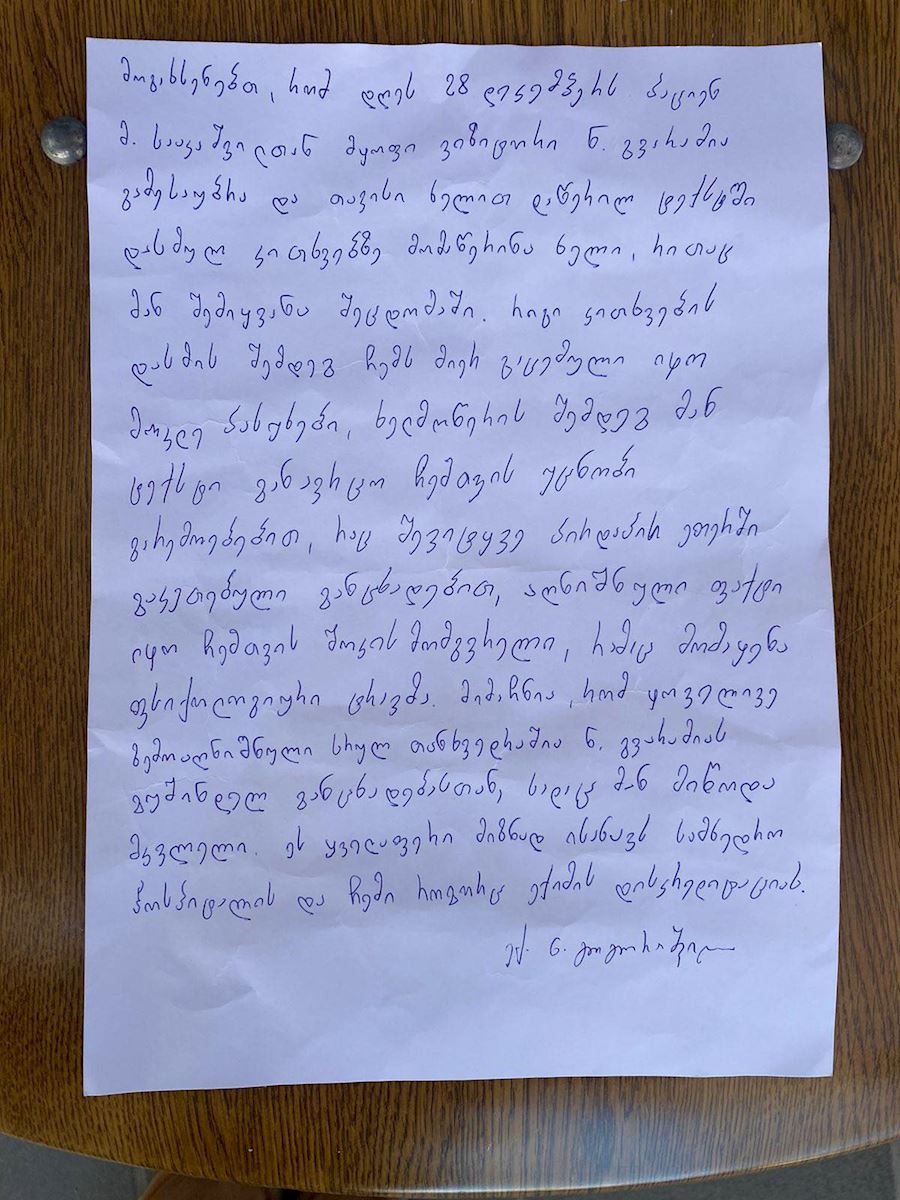 მოგახსენებთ, რომ დღეს 28 დეკემბერს პაციენ
მ. სააკაშვილთან მყოფი ვიზიტორი ნ. გვარამია
გამესაუბრა და თავისი ხელით დაწერილ ტექსტში
დასმულ კითხვებზე მომაწერინა ხელი, რითაც
მან შემიყვანა შეცდომაში. რიგი კითხვების
დასმის შემდეგ ჩემს მიერ გაცემული იყო
მოკლე პასუხები, ხელმოწერის შემდეგ მან
ტექსტი განავრცო ჩემთვის უცნობი
გარემოებებით, რაც შევიტყვე პირდაპირ ეთერში
გაკეთებული განცხადებით, აღნიშნული ფაქტი
იყო ჩემთვის შოკის მომგვრელი, რამაც მომაყენა
ფსიქოლოგიური ტრავმა. მიმაჩნია, რომ ყოველივე
ზემოაღნიშნული სრულ თანხვედრაშია ნ. გვარამიას
გუშინდელ განცხადებასთან, სადაც მან მიწოდა
მკვლელი. ეს ყველაფერი მიზნად ისახავს სამხედრო
ჰოსპიტალის და ჩემი როგორც ექიმის დისკრედიტაციას.
ექ. ნ.